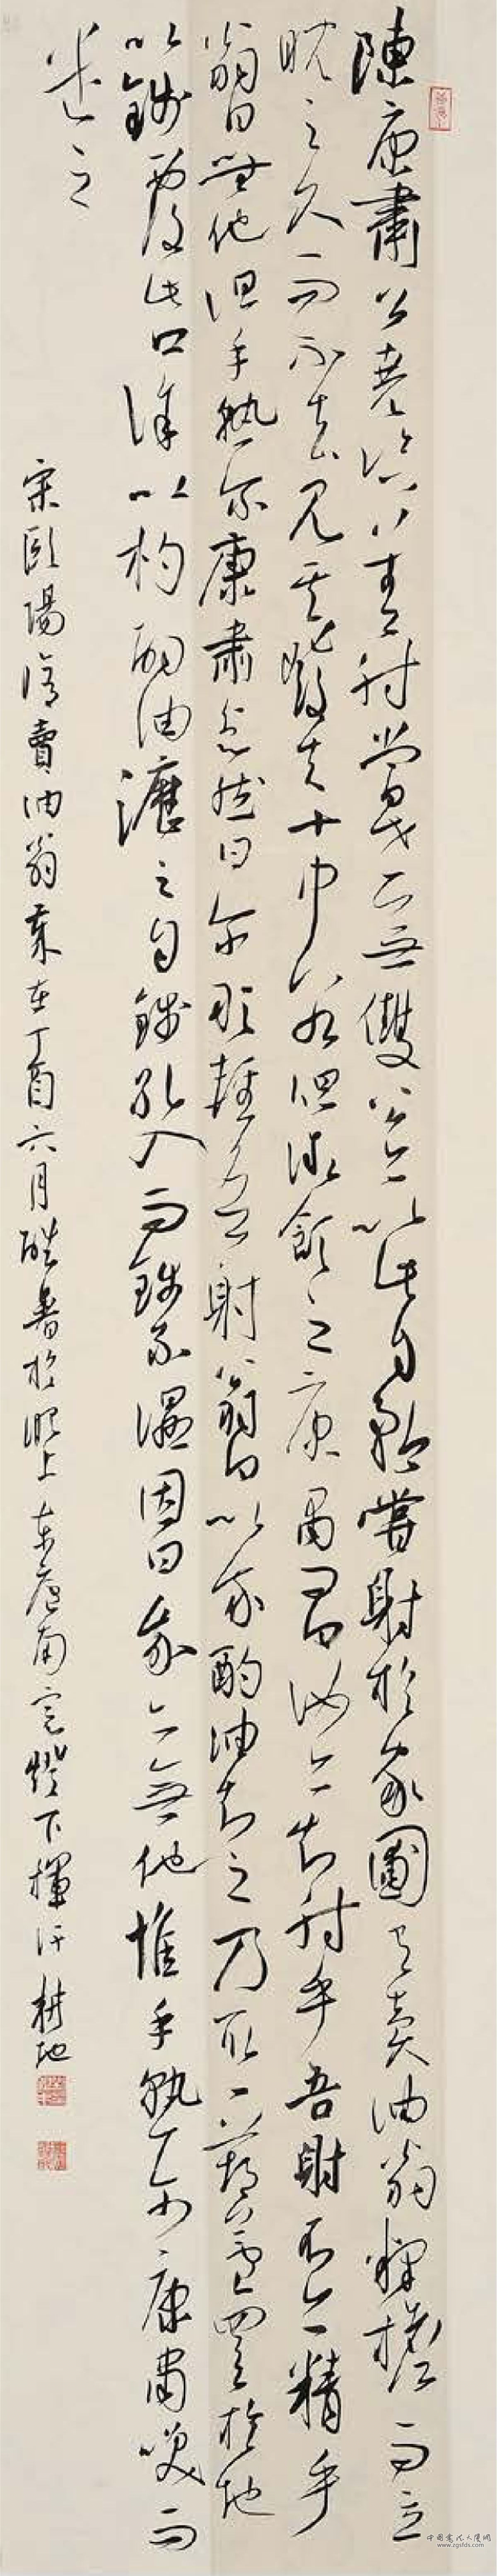 陳康肅公堯咨善射當世無雙公亦以此自矜嘗射於家圃有賣油翁釋擔而立
睨之久而不去見其發矢十中八九但微頷之康肅問曰汝亦知射乎吾射不亦精乎
翁曰無他但手熟爾康肅忿然曰爾安敢輕吾射翁曰以我酌油知之乃取一葫蘆置於地
以錢覆其口徐以杓酌油瀝之自錢孔入而錢不濕因曰我亦無他惟手熟爾康肅笑而
遣之
宋歐陽修賣油翁 歲在丁酉六月酷暑於 上 南 燈下揮汗 耕地
中国书法大厦网
www.zgsfds.com